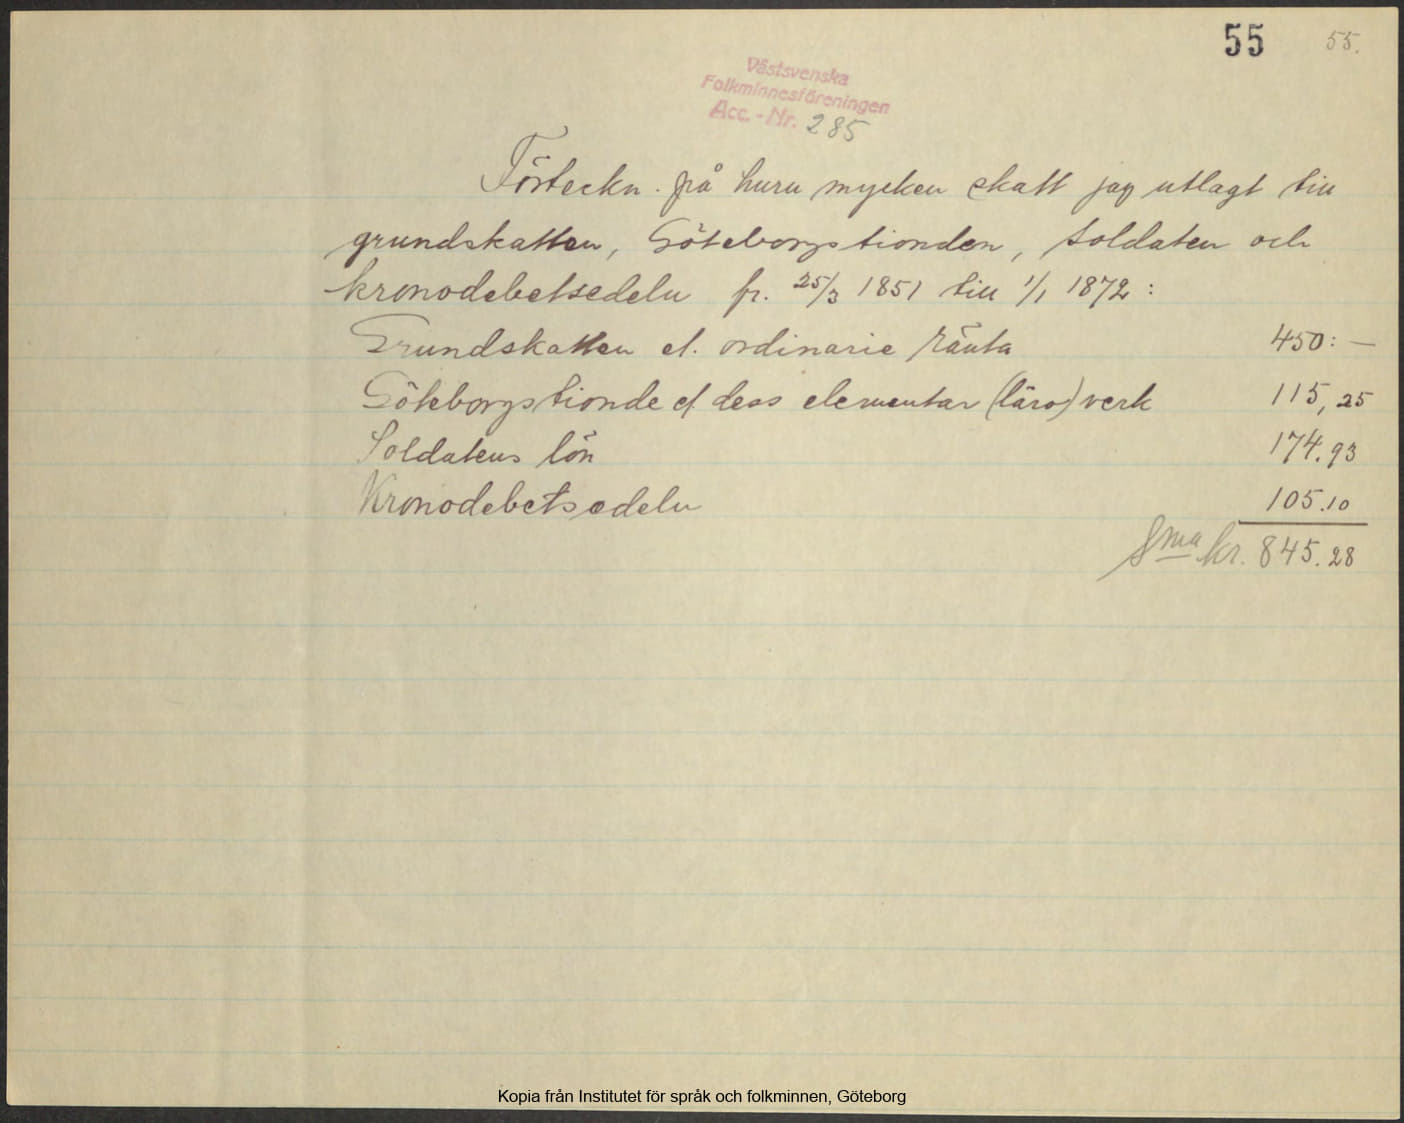 55 55.
Västsvenska
Folkminnesföreningen
Acc. - Nr. 285
Förteckn. på huru mycken skatt jag utlagt till
grundskatten, Göteborgstionden, soldaten och
kronodebetsedeln fr. 25/3 1851 till 1/1 1872 :
Grundskatten el. ordinarie ränta 450: —
Göteborgstionde el. dess elementar (läro) verk 115,25
Soldatens lön 174.93
Kronodebetsedeln 105.10
Sma kr. 845.28
Kopia från Institutet för språk och folkminnen, Göteborg